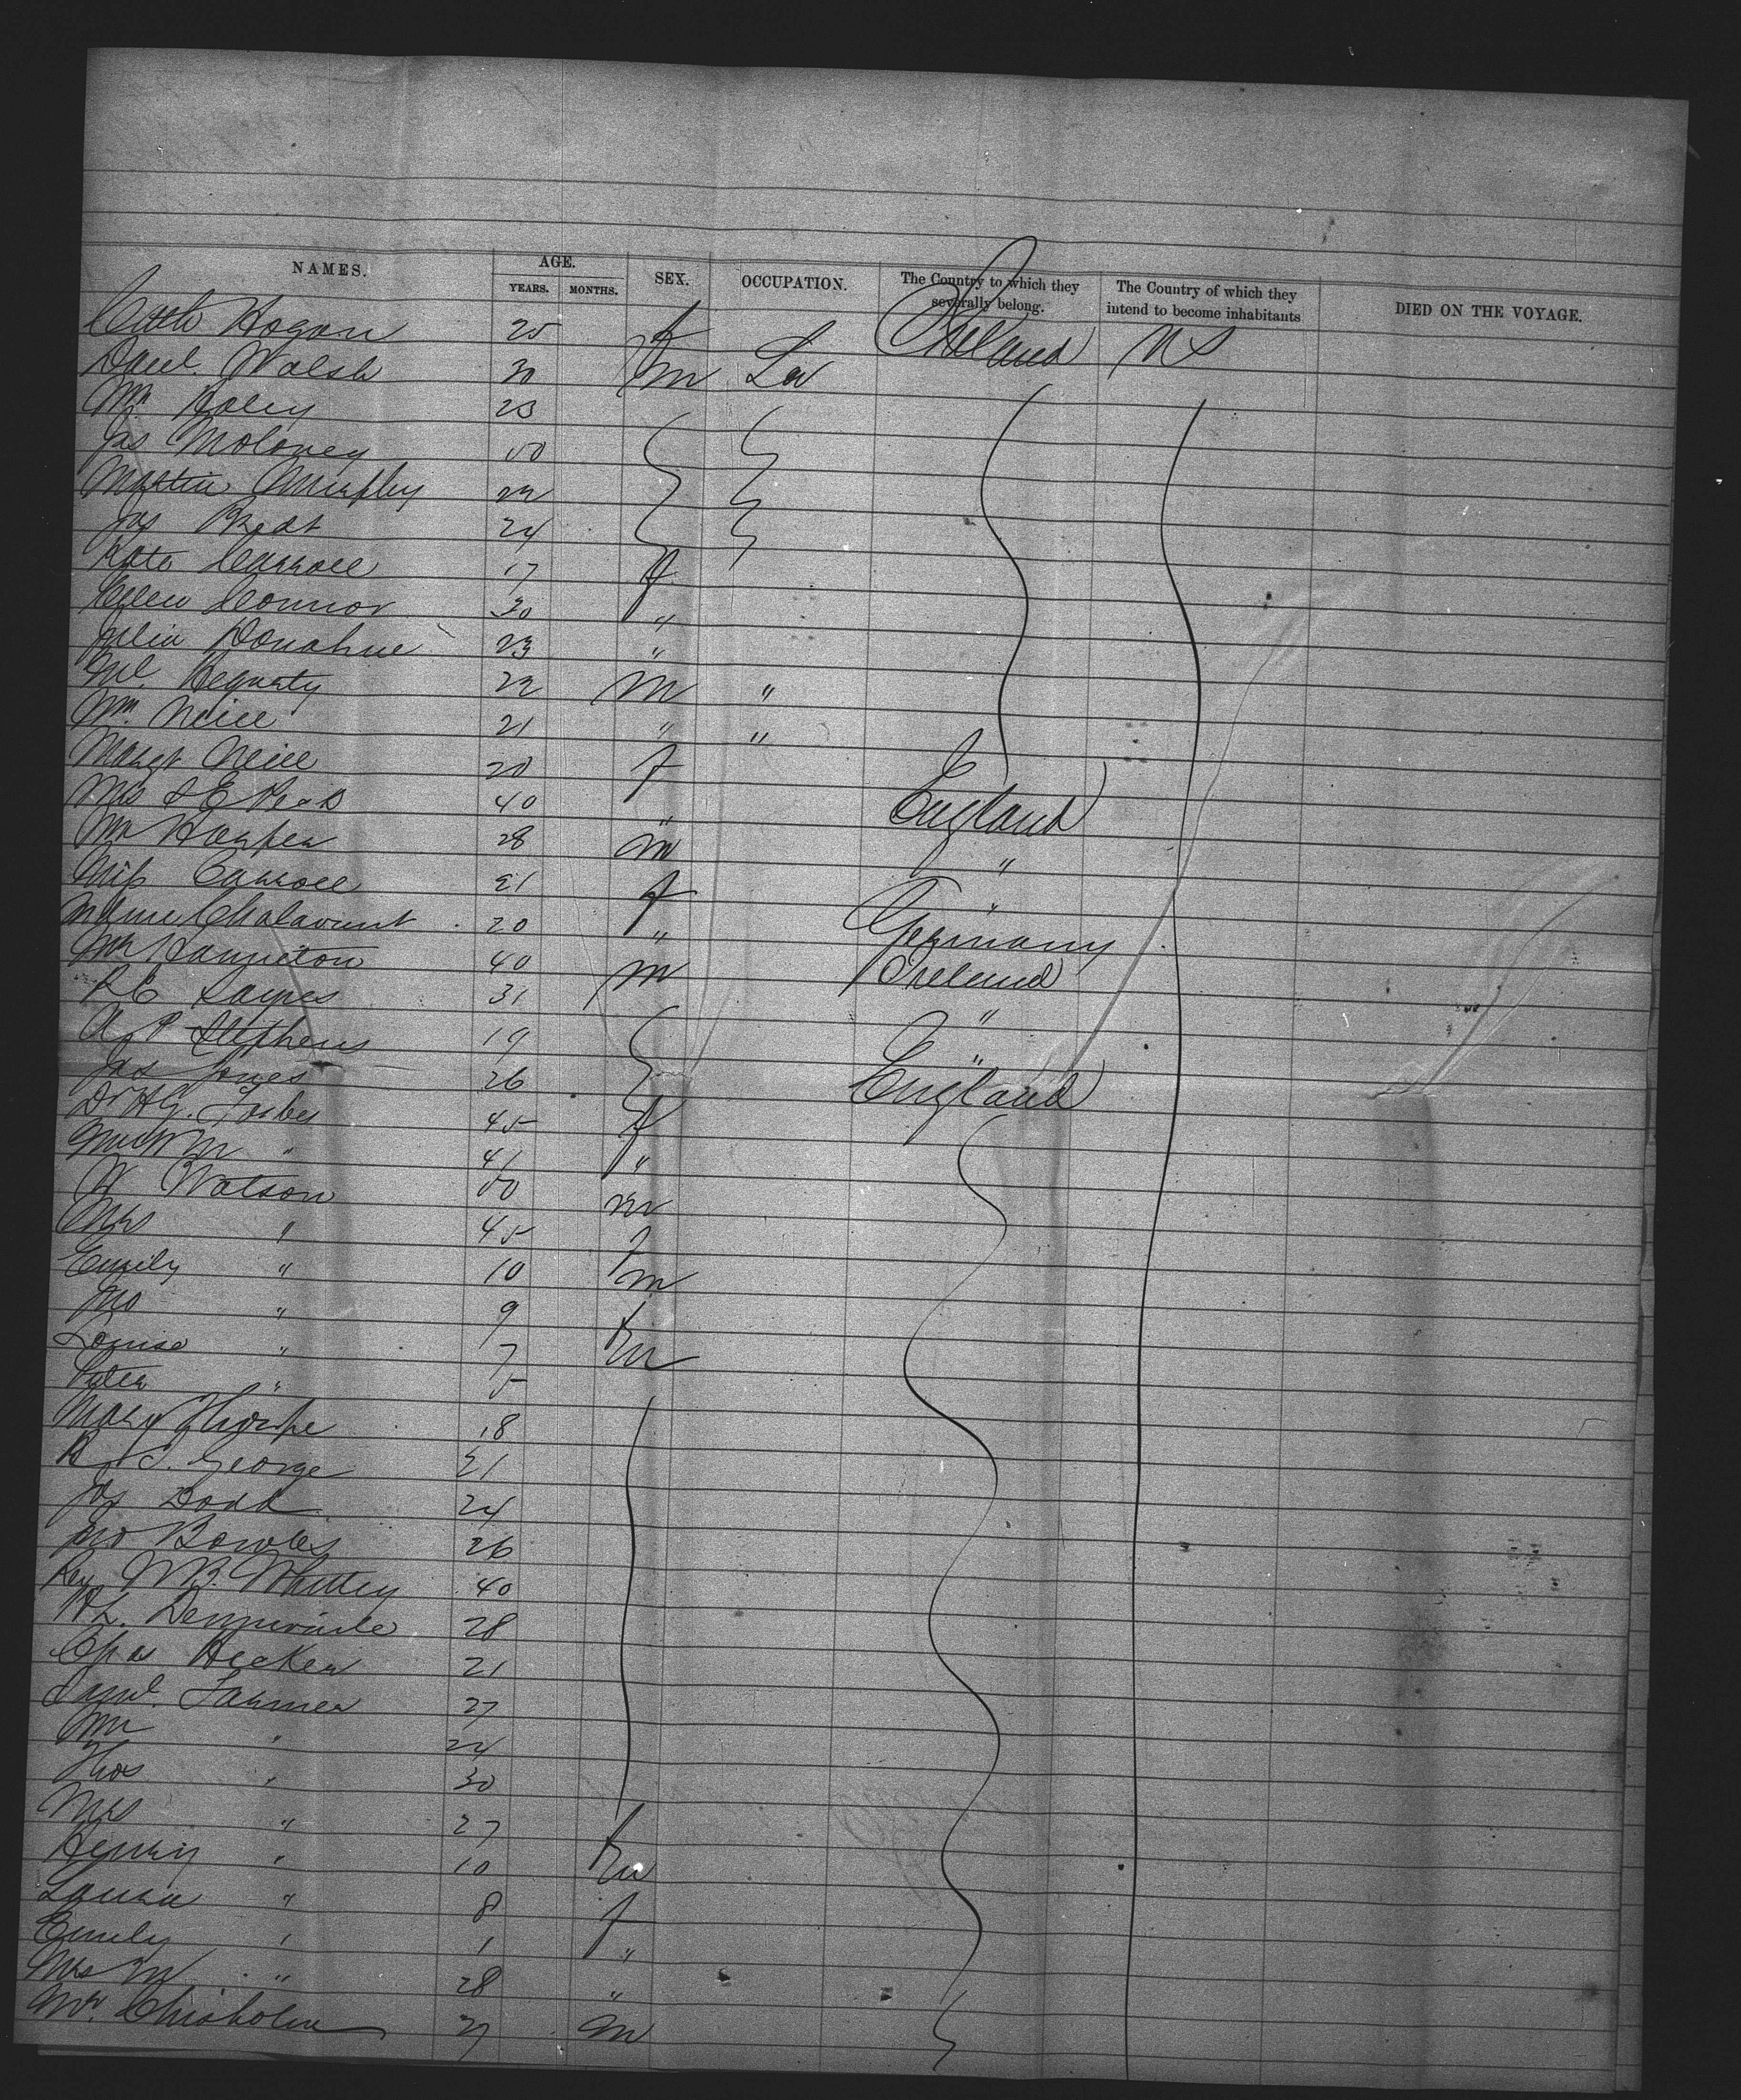 NAMES. AGE. SEX. OCCUPATION. The Country to which they severally belong. The Country of which they intend to become inhabitants DIED ON THE VOYAGE.
YEARS. MONTHS.
Cath Hogan 25 f Ireland US
Danl. Walsh 30 m La
Wm Foley 23
Jas Moloney 50
Martin Murphy 22
Jas 24
Kate Carroll 17 f
Ellen Connor 30 "
Julia Donahue 23 "
Ml. Hegarty 22 m "
Wm. Neill 21 " "
Margt Neill 20 f
Mrs S E 40 " England
Mr Harper 28 m "
Miss Carroll 21 f "
20 " Germany
Mr Hamilton 40 m Ireland
R C 31 "
A P Stephens 19 "
Jas Jones 26 England
Dr H G. Forbes 45 f
M " 41 "
W Watson 50 m
Mrs " 45 f
Emily " 10 m
Jno " 9 f
Louisa " 7 m
Peter " 5
Mary Thorpe 18
R S. George 21
Jas Dodd 24
Jno Bowles 26
Rev W B. Whitley 40
28
Chas Hecker 21
Saml. Farmer 27
Wm " 24
Thos " 30
Mrs " 27 f
Henry " 10 m
Laura " 8 f
Emily " 1 "
Mrs W " 28 "
Mr. Chisholm 27 m